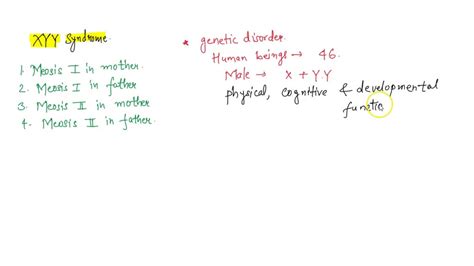 XYY Syndrome
1. Meosis I in mother.
2. Meosis I in father
3. Meosis II in mother
4. Meosis II in father.
* genetic disorder.
Human beings → 46.
Male → X + YY
physical, cognitive & developmental
functio